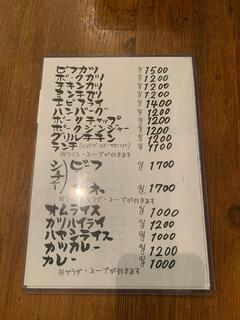 ビフカツ ¥1500
ポークカツ ¥1200
チキンカツ ¥1200
ミンチカツ ¥1200
エビフライ ¥1400
ハンバーグ ¥1200
ポークチャップ ¥1200
ポークジンジャー ¥1200
グリルチキン ¥1200
ランチ ¥1100
※ライス・スープが付きます
シチュー
ビーフ ¥1700
¥1700
オムライス ¥1000
カツハイライ ¥1200
ハヤシライス ¥1000
カツカレー ¥1200
カレー ¥1000
※サラダ・スープが付きます